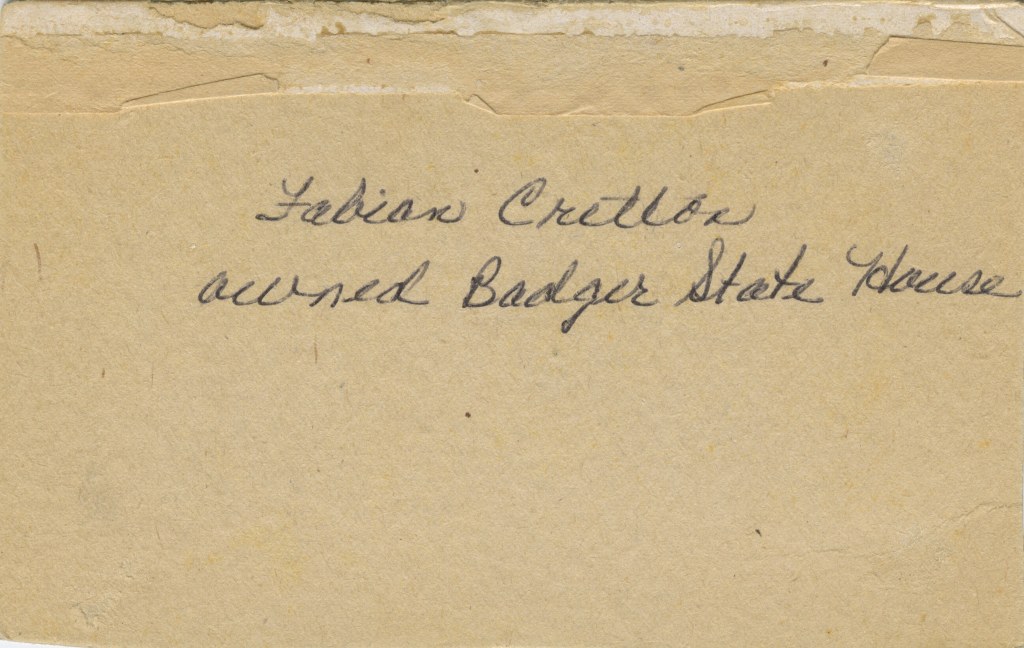 Fabian Cretton
owned Badger State House